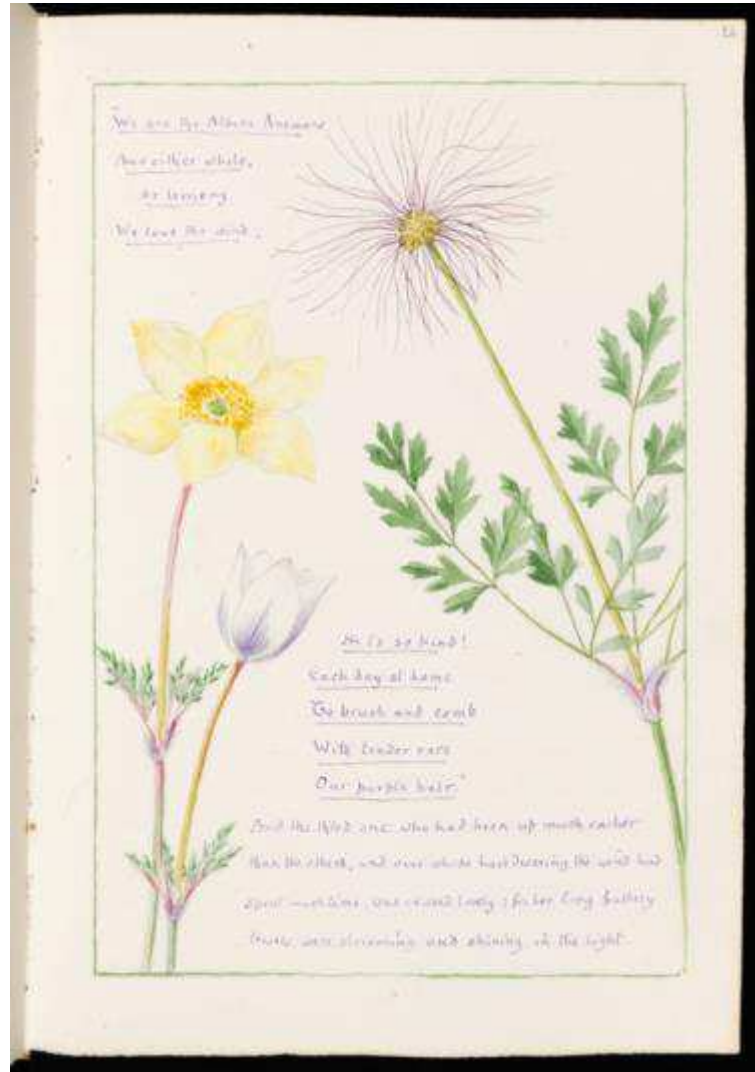 "We are the Alpine Anemone
And either white,
Or lemony
We love the wind.
He is so kind!
Each day at home
To brush and comb
With tender care
Our purple hair."
And the third one who had been up much earlier
than the others, and over whose hair dressing the wind had
spent much time, was indeed lovely; for her long feathery
were streaming and shining in the light